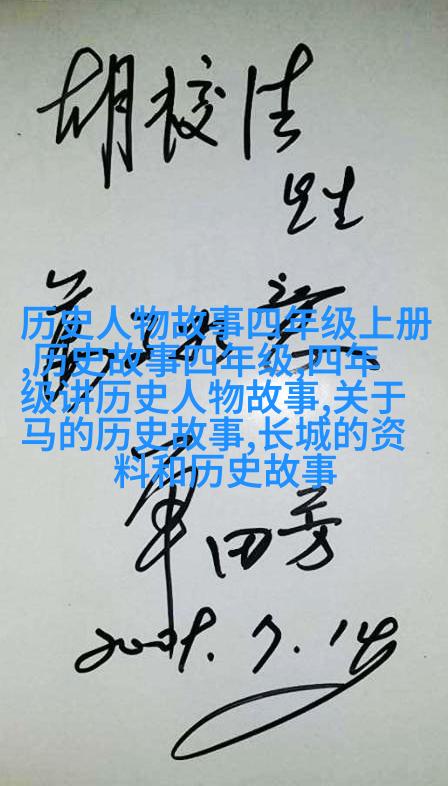 胡校
先生
历史人物故事四年级上册
,历史故事四年级,四年
级讲历史人物故事,关于
马的历史故事,长城的资
料和历史故事
单田芳
7.14